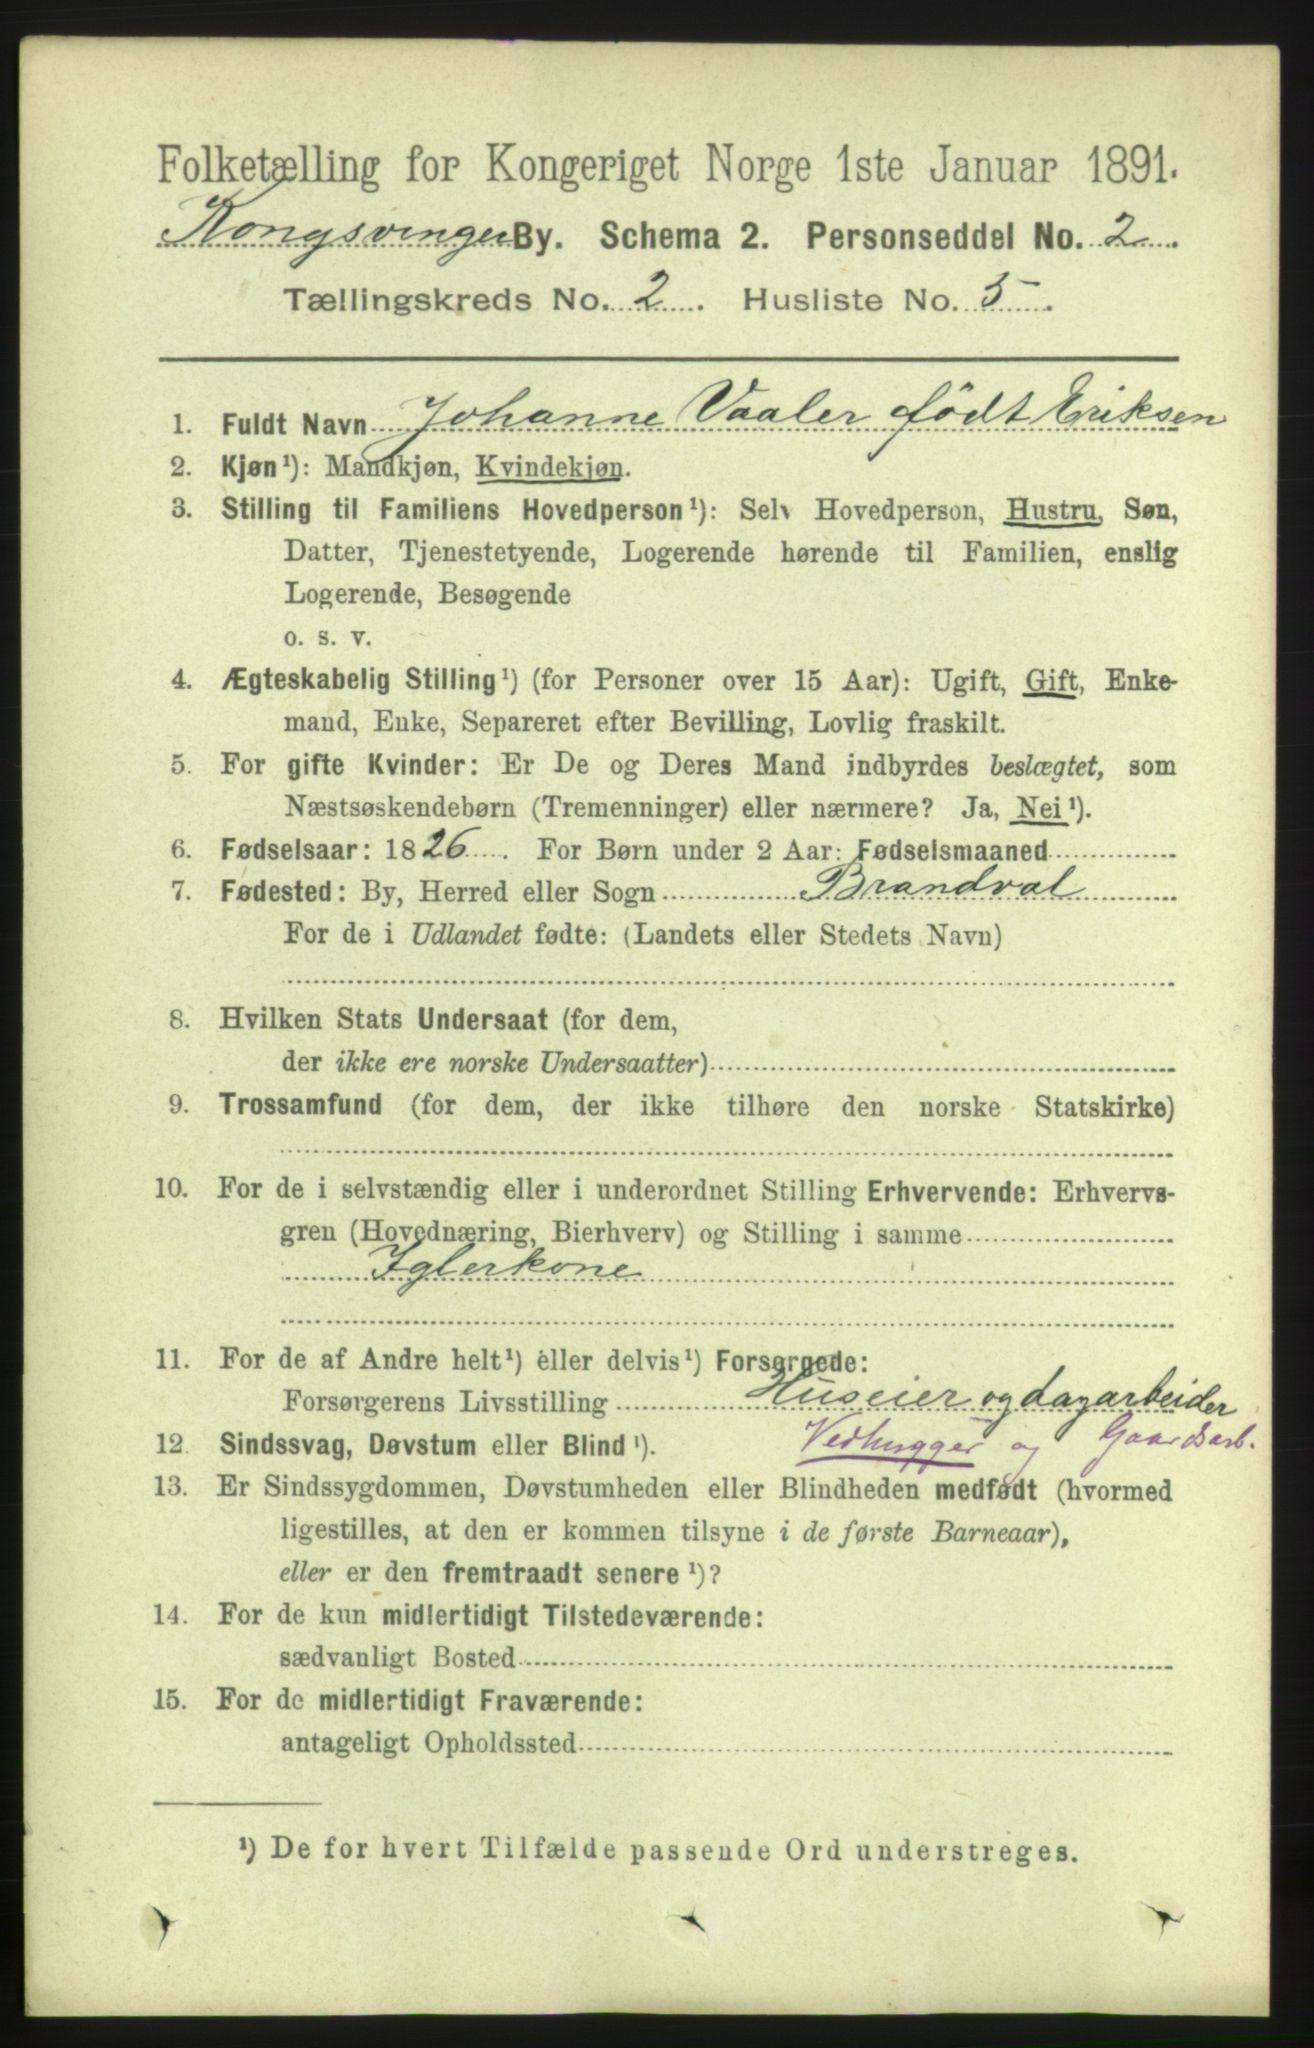 Folketælling for Kongeriget Norge 1ste Januar 1891.
Kongsvinger By. Schema 2. Personseddel No. 2
Tællingskreds No. 2. Husliste No. 5.
1. Fuldt Navn Johanne Vaaler födt Eriksen
2. Kjøn¹): Mandkjøn, Kvindekjøn.
3. Stilling til Familiens Hovedperson¹): Selv Hovedperson, Hustru, Søn,
Datter, Tjenestetyende, Logerende hørende til Familien, enslig
Logerende, Besøgende
o. s. v.
4. Ægteskabelig Stilling¹) (for Personer over 15 Aar): Ugift, Gift, Enke-
mand, Enke, Separeret efter Bevilling, Lovlig fraskilt.
5. For gifte Kvinder: Er De og Deres Mand indbyrdes beslægtet, som
Næstsøskendebørn (Tremenninger) eller nærmere? Ja, Nei¹).
6. Fødselsaar: 1826. For Børn under 2 Aar: Fødselsmaaned
7. Fødested: By, Herred eller Sogn Brandval
For de i Udlandet fødte: (Landets eller Stedets Navn)
8. Hvilken Stats Undersaat (for dem,
der ikke ere norske Undersaatter)
9. Trossamfund (for dem, der ikke tilhøre den norske Statskirke)
10. For de i selvstændig eller i underordnet Stilling Erhvervende: Erhvervs-
gren (Hovednæring, Bierhverv) og Stilling i samme
Iglerkone
11. For de af Andre helt¹) eller delvis¹) Forsørgede:
Forsørgerens Livsstilling Huseier og dagarbeider
12. Sindssvag, Døvstum eller Blind¹). Vedhugger og Gaardsarb.
13. Er Sindssygdommen, Døvstumheden eller Blindheden medfødt (hvormed
ligestilles, at den er kommen tilsyne i de første Barneaar),
eller er den fremtraadt senere¹)?
14. For de kun midlertidigt Tilstedeværende:
sædvanligt Bosted
15. For de midlertidigt Fraværende:
antageligt Opholdssted
¹) De for hvert Tilfælde passende Ord understreges.